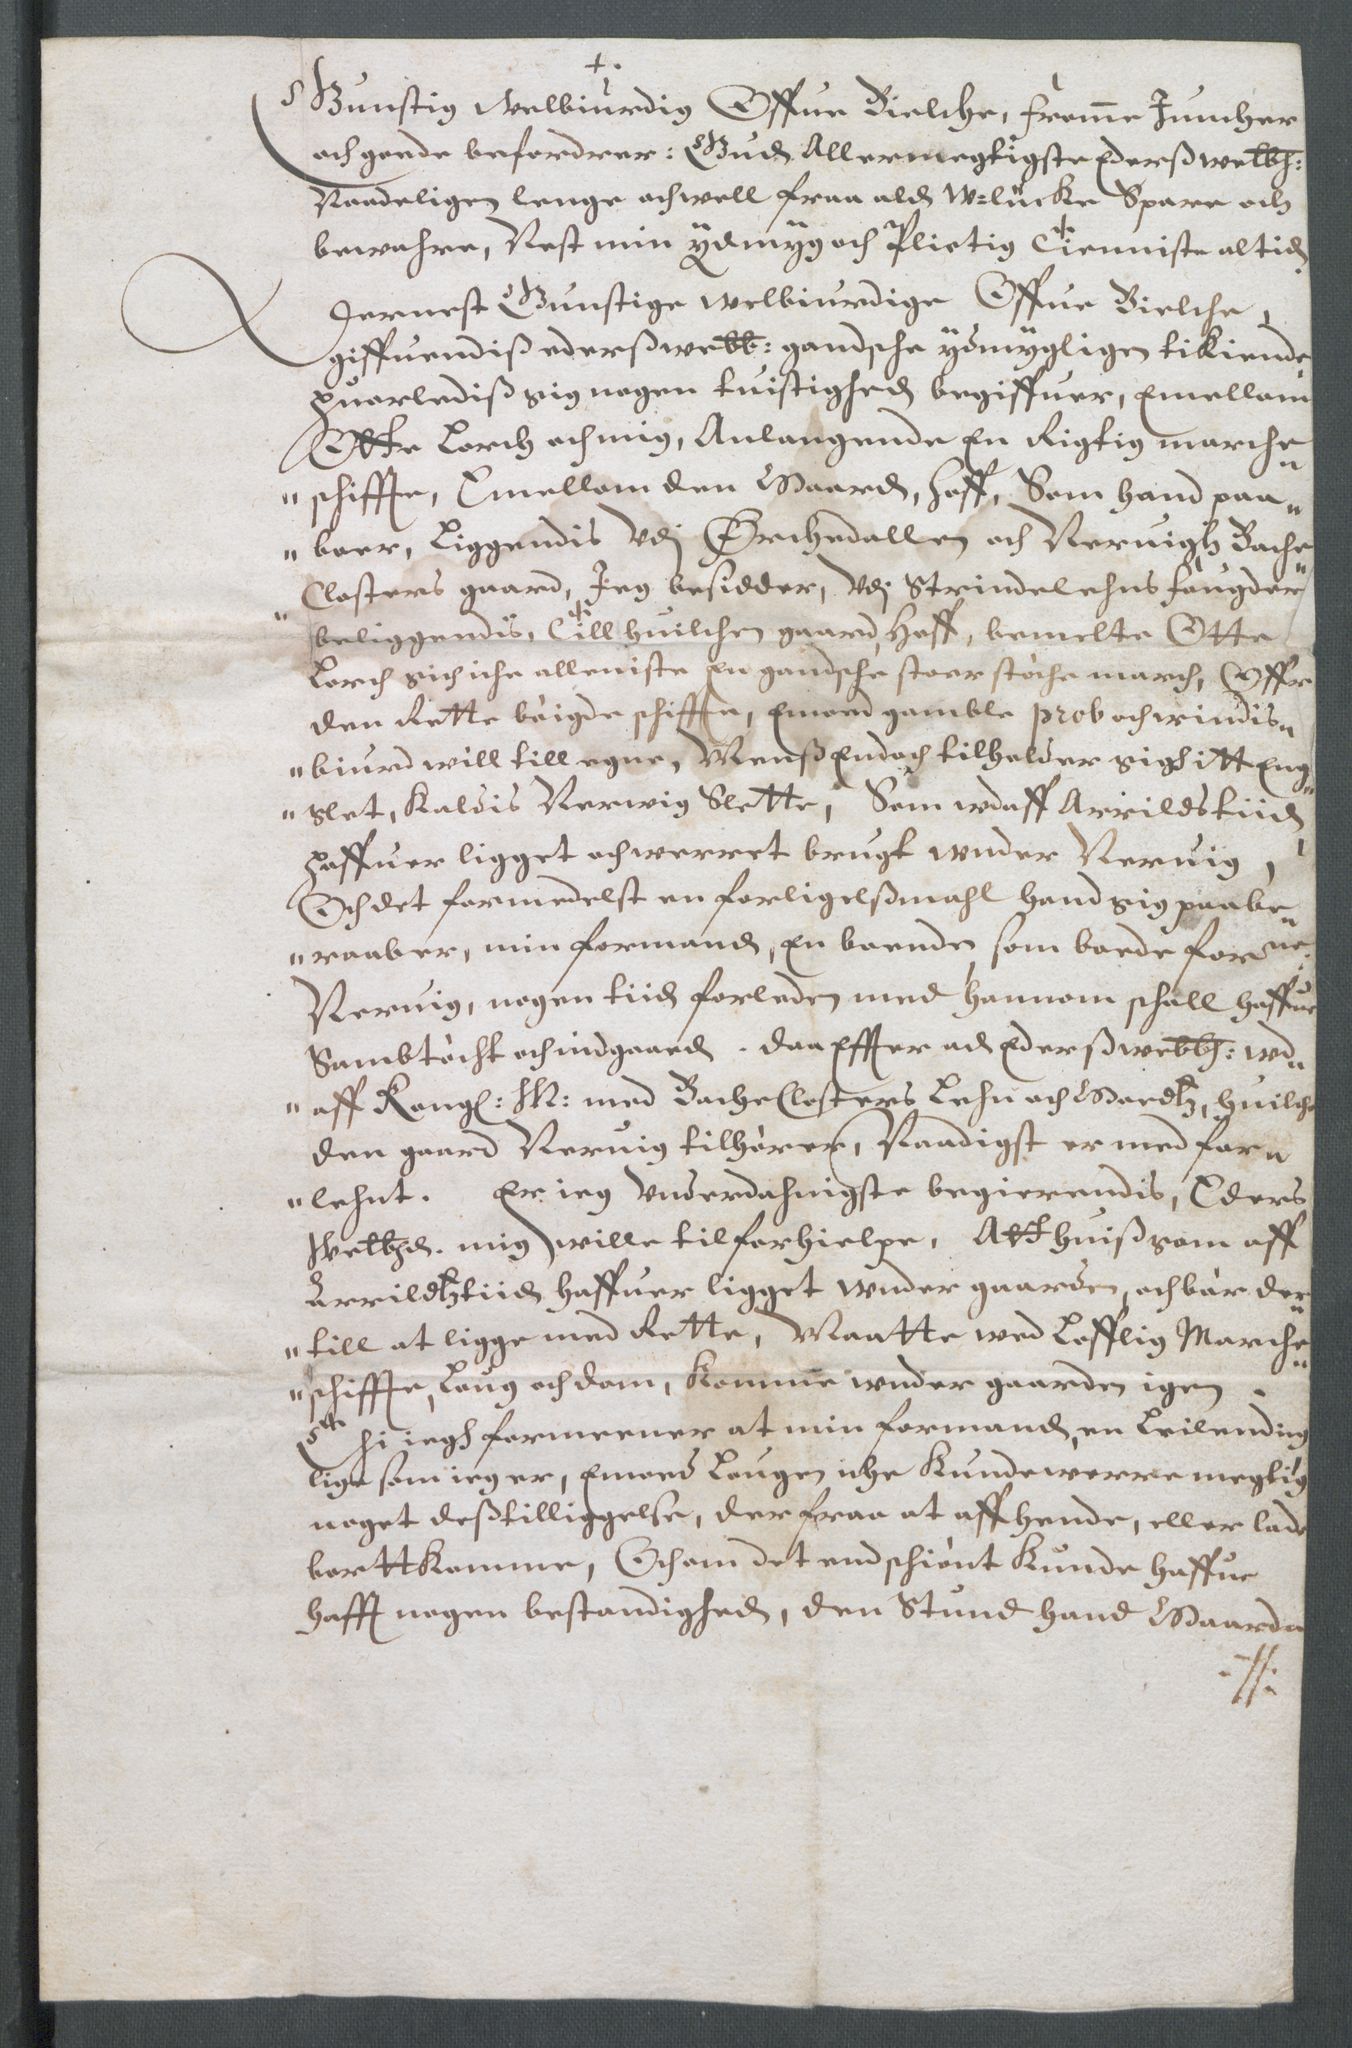 Gunstig Velbiurdig Offue Bielche, fromme Juncher
och goede befordrer: Gud Allermegtigste Ederß welbh:
Naadeligen lenge och well fraa ald W=lücke Spare och
bewahre, Nest min ÿdmÿg och Plictig Tienniste altid
Dernest Gunstige welbiurdige Offue Bielche,
giffuendiß ederß welb: gandsche ÿdmÿgligen tilkiende
Huorlediß sig nogen tuistighed begiffuer, Emellom
Otte Lorch och mig, Anlangende En Rigtig marche
schifftte, Emellom den Gaard, Hoff, Som hand paa
boer, Liggendis Vdj Ørchedallen och Neruigh Bache
Closters gaard, Jeg besidder, Vdj Strindelehns fougderi
beliggendis, Till huilchen gaard Hoff, bemelte Otte
Lorch sich iche alleniste En gandsche stoer støche march, Offr
den Rette bøigde schiffte, Emod gamble prob och windis
biurd will till egne, Menß Endoch tilholder sigh itt Eng
slet, Kaldis Nerwig Slette, Som wdaff Arrilds tiid
Haffuer ligget och werret brugt wnder Neruig,
Och det formedelst en forligelßmahl hand sig paabe
raaber, min formand, En boende som boede for me
Neruig, nogen tiid forleden med hannom schall haffue
Sambtøcht och indgaaed. Daa Effter ad Ederß welbh: wd
aff Kongl: M: med Bache Closters Lehn och Goedtz, huilche
den gaard Neruig tilhører, Naadigst er med for
lehnt. Er ieg Vnderdahnigste begierendis, Eders
Welbhd. mig wille tilforhielpe, Att huiß som aff
Arrildtz tiid haffuer ligget wnder gaarden, och bør der
till at ligge med Rette, Maatte wed Lofflig Marche
schiffte, Loug och dom, Komme wnder gaarden igen.
Thi iegh formeener at min formand, en Leilending
lige som ieg er, Emod Lougen iche Kunde werre megtig
noget deßtilliggelse, der fraa at affhende, eller lade
bortt Komme, Och om det end schiønt Kunde haffue
hafft nogen bestandighed, den Stund hand Gaarden